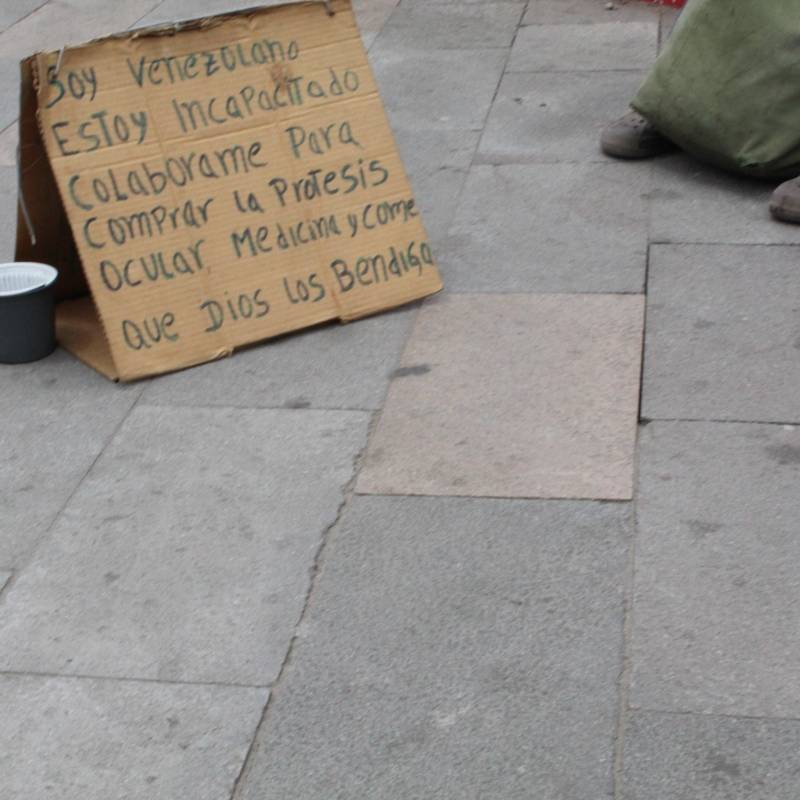 Soy Venezolano
Estoy Incapacitado
Colaborame Para
Comprar la Protesis
Ocular, Medicina y Come
que Dios los Bendiga